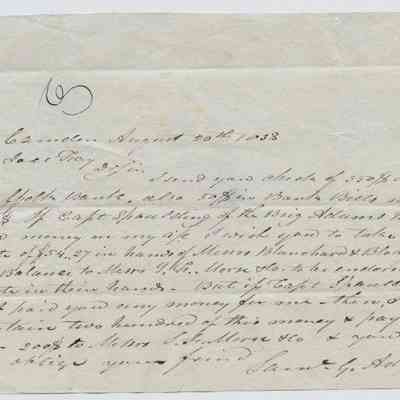 Camden August 20th 1838
Dr Sir
I send you check of 350$
Bank, also 50$ in Bank Bills
If Capt Spaulding of the Brig Adams
money on my a/c I wish you to take
of $54.27 in hands of Messrs Blanchard &
Balance to Messrs S. Morse &Co. to be endorsed
in their hands - But if Capt
paid you any money for me - then
two hundred of this money & pay
- 200$ to Messrs S. Morse &Co & you
oblige your friend
Saml G. Ad